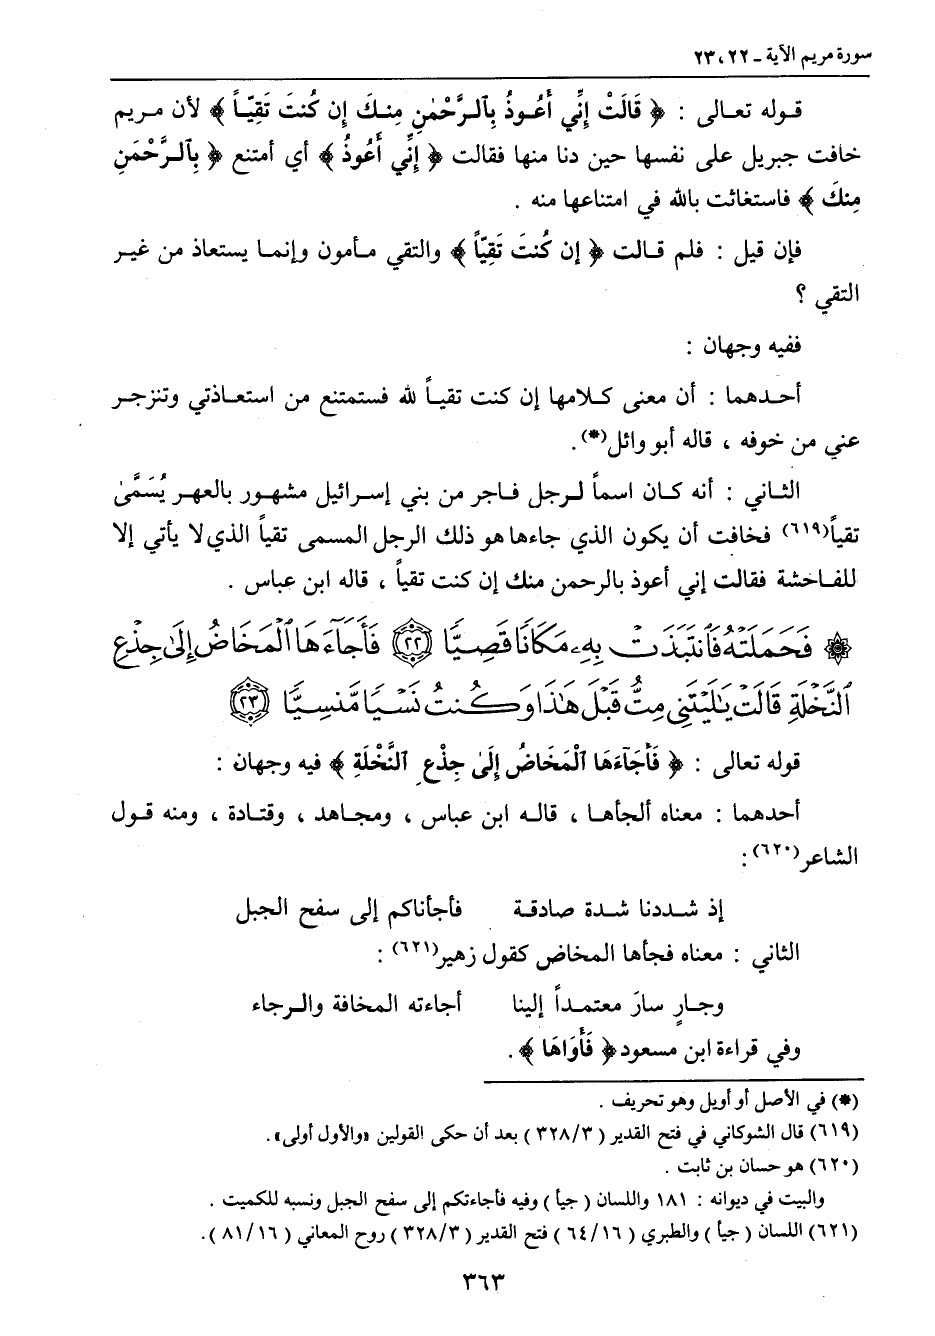 سورة مريم الآية ـ ٢٢ ، ٢٣
قوله تعالى : ﴿ قَالَتْ إِنِّي أَعُوذُ بِٱلرَّحْمٰنِ مِنكَ إِن كُنتَ تَقِيّاً ﴾ لأن مريم
خافت جبريل على نفسها حين دنا منها فقالت ﴿ إِنِّي أَعُوذُ ﴾ أي أمتنع ﴿ بِٱلرَّحْمَنِ
مِنكَ ﴾ فاستغاثت بالله في امتناعها منه .
فإن قيل : فلم قالت ﴿ إن كُنتَ تَقِيّاً ﴾ والتقي مأمون وإنما يستعاذ من غير
التقي ؟
ففيه وجهان :
أحدهما : أن معنى كلامها إن كنت تقياً لله فستمتنع من استعاذتي وتنزجر
عني من خوفه ، قاله أبو وائل(*).
الثاني : أنه كان اسماً لرجل فاجر من بني إسرائيل مشهور بالعهر يُسَمَّىٰ
تقياً(٦١٩) فخافت أن يكون الذي جاءها هو ذلك الرجل المسمى تقياً الذي لا يأتي إلا
للفاحشة فقالت إني أعوذ بالرحمن منك إن كنت تقياً ، قاله ابن عباس .
۞ فَحَمَلَتْهُ فَٱنتَبَذَتْ بِهِۦ مَكَانًا قَصِيًّا ﴿٢٢﴾ فَأَجَآءَهَا ٱلْمَخَاضُ إِلَىٰ جِذْعِ
ٱلنَّخْلَةِ قَالَتْ يَٰلَيْتَنِى مِتُّ قَبْلَ هَٰذَا وَكُنتُ نَسْيًا مَّنسِيًّا ﴿٢٣﴾
قوله تعالى : ﴿ فَأَجَآءَهَا ٱلْمَخَاضُ إِلَىٰ جِذْعِ ٱلنَّخْلَةِ ﴾ فيه وجهان :
أحدهما : معناه ألجأها ، قاله ابن عباس ، ومجاهد ، وقتادة ، ومنه قول
الشاعر(٦٢٠) :
إذ شددنا شدة صادقة فأجأناكم إلى سفح الجبل
الثاني : معناه فجأها المخاض كقول زهير(٦٢١) :
وجارٍ سارَ معتمداً إلينا أجاءته المخافة والرجاء
وفي قراءة ابن مسعود ﴿ فَأَوَاهَا ﴾ .
(*) في الأصل أو أويل وهو تحريف .
(٦١٩) قال الشوكاني في فتح القدير ( ٣٢٨/٣ ) بعد أن حكى القولين «والأول أولى».
(٦٢٠) هو حسان بن ثابت .
والبيت في ديوانه : ١٨١ واللسان ( جيأ ) وفيه فأجاءتكم إلى سفح الجبل ونسبه للكميت .
(٦٢١) اللسان ( جيأ ) والطبري ( ٦٤/١٦ ) فتح القدير ( ٣٢٨/٣ ) روح المعاني ( ٨١/١٦ ).
٣٦٣